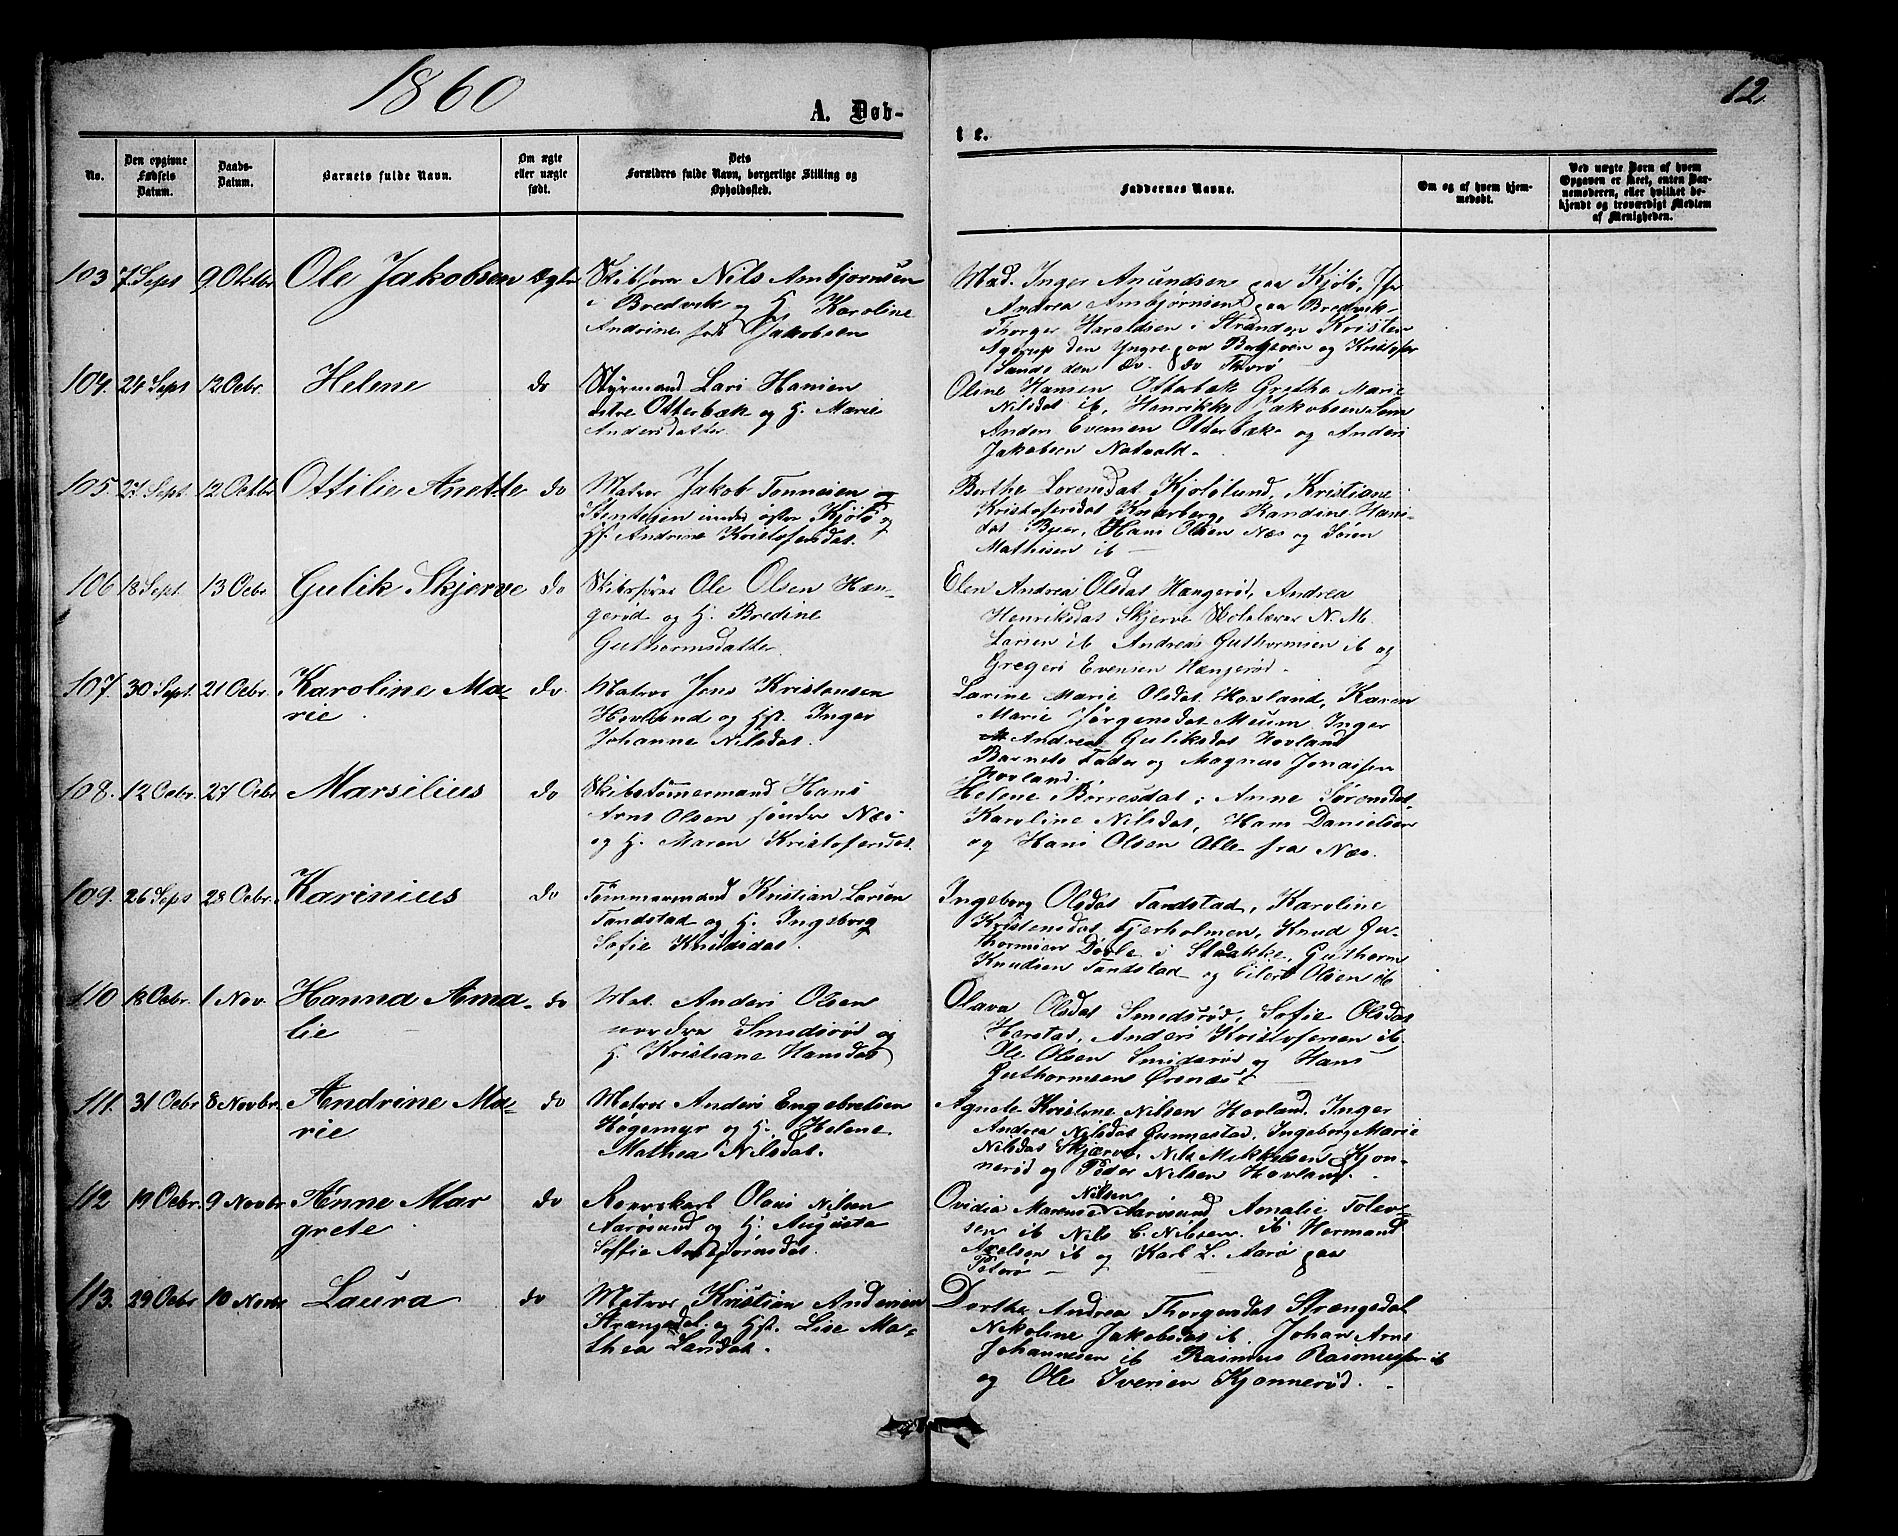 1860
12.
A. Døb-
t e.
No.
Den opgivne
Fødsels
Datum.
Daabs-
Datum.
Barnets fulde Navn.
Om ægte
eller uægte
født.
Dets
Forældres fulde Navn, borgerlige Stilling og
Opholdssted.
Faddernes Navne.
Om og af hvem hjem-
medøbt.
Ved uægte Børn af hvem
Opgaven er skeet, enten Bar-
nemoderen, eller hvilket be-
kjendt og troværdigt Medlem
af Menigheden.
103 7 Sept 9 Oktbr Ole Jakobsen Ægte
Skibsfører Nils Ambjørnsen
i Bredvik og H. Karoline
Andrine født Jakobsen
Mad. Inger Amundsen paa Kjølø, Jfr
Andrea Ambjørnsen paa Bredvik
Thorger Haraldsen i Stranden Kristen
Agerup den Yngre paa og Kristofer
Sands den
104. 24 Sept 12 Ocbr. Helene do
Styrmand Lars Hansen
østre Otterbæk og H. Marie
Andersdatter.
Oline Hansen Otterbæk Grethe Marie
Nilsdat ib, Henrikke Jakobsen
Anders Evensen Otterbæk og Anders
Jakobsen
105. 27 Sept 12 Octbr Ottilie Anette do
Matros Jakob Tønnesen og
under østre Kjølø og
H. Andrine Kristofersdat.
Berthe Lorensdat Kjølølund, Kristiane
Kristofersdat Knarberg, Randine Hans-
dat Buer, Hans Olsen Næs og Søren
Mathisen ib —
106 18 Sept. 13 Ocbr Gulik Skjerve do
Skibsfører Ole Olsen Hæn-
gerød og H. Bredine
Guthormsdatter.
Elen Andrea Olsdat Hængerød, Andrea
Henriksdat Skjerve Skolelærer N. M.
Larsen ib Andreas Guthormsen ib og
Gregers Evensen Hængerød.
107. 30 Sept. 21 Ocbr. Karoline Ma- do.
rie.
Matros Jens Kristensen
Hovland og Hst. Inger
Johanne Nilsdat.
Larine Marie Olsdat Hovland, Karen
Marie Jørgensdat Meum Inger
Andrea Guliksdat Hovland
Barnets Fader og Magnus Jonassen
Hovland.
108. 12 Ocbr. 27 Ocbr Marsilius do
Skibstømmermand Hans
Arnt Olsen søndre Næs
og H. Maren Kristofersdat.
Helene Børresdat, Anne Sørensdat
Karoline Nilsdat, Hans Danielsen
og Hans Olsen Alle fra Næs.
109. 26 Sept 28 Ocbr. Karinius do
Tømmermand Kristian Larsen
Tandstad og H. Ingeborg
Sofie Knudsdat.
Ingeborg Olsdat Tandstad, Karoline
Kristensdat Fjerholmen, Knud Gu-
thormsen i Stokke, Guthorm
Knudsen Tandstad og Eilert Olsen ib
110 18 Ocbr. 1 Nov. Hanna Ama- do
lie
Mat. Anders Olsen
nordre Smidsrød og
H. Kristiane Hansdat
Olava Olsdat Smidsrød, Sofie Olsdat
Anders Kristofersen ib
Ole Olsen Smidsrød og Hans
Guthormsen Ørsnes
111. 31 Ocbr 8 Novbr. Andrine Ma- do
rie
Matros Anders Engebretsen
Høgemyr og H. Helene
Mathea Nilsdat.
Agnete Kristine Nilsen Hovland. Inger
Andrea Nilsdat Gunnestad, Ingeborg Marie
Nilsdat Skjærve, Nils Mikkelsen Kjøn-
nerød og Peder Nilsen Hovland.
112 19 Ocbr. 9 Novbr Anne Mar do
grete
Olaus Nilsen
Aarøsund og H. Augusta
Soffie Ambjørnsdat.
Ovidia Marensø Nilsen Aarøsund Amalie Tolev-
sen ib Nils C. Nilsen ib Hermand
Axelsen ib og Karl L. Aarø paa
113. 29 Ocbr 10 Novbr Laura do
Matros Kristian Andersen
Strængsdal og Hst. Lise Ma-
thea Larsdat.
Dorthe Andrea Thorgersdat Strængsdal
Nikoline Jakobsdat ib. Johan Arnt
Johannesen ib Rasmus Rasmussen ib
og Ole Iversen Kjønnerød.